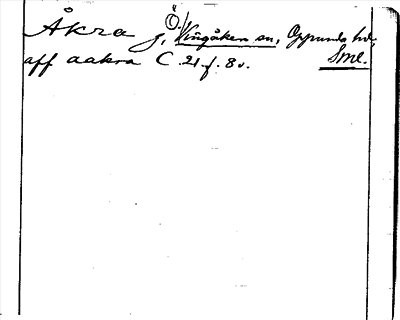 Åkra Ö. f, Vingåker sn, Oppunda hd, Sml.
aff aakra C 21 f. 8 v.